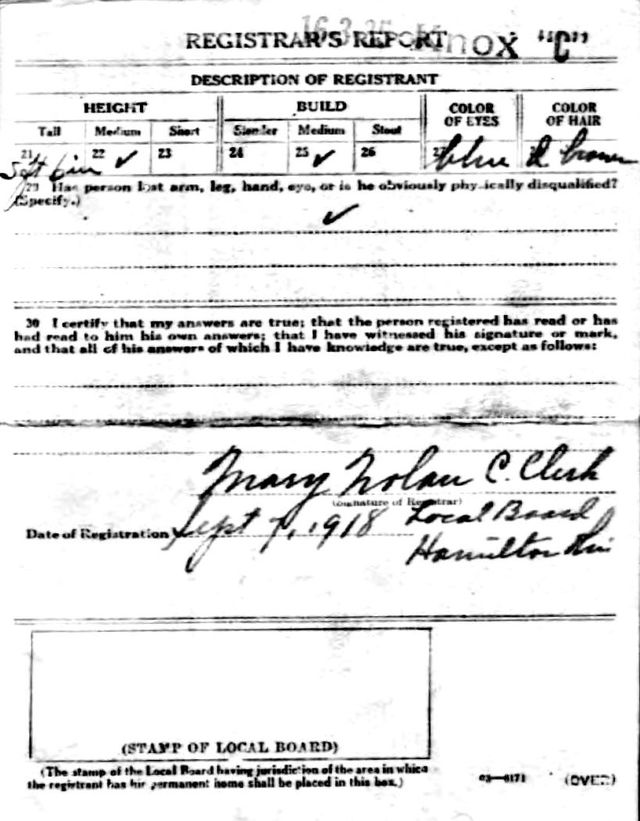 16 3
REGISTRAR'S REPORT Knox "C"
DESCRIPTION OF REGISTRANT
HEIGHT BUILD COLOR OF EYES COLOR OF HAIR
Tall Medium Short Slender Medium Stout
21 22 ✓ 23 24 25 ✓ 26 27 blue brown
5ft
29 Has person lost arm, leg, hand, eye, or is he obviously physically disqualified?
(Specify.)
✓
30 I certify that my answers are true; that the person registered has read or has
had read to him his own answers; that I have witnessed his signature or mark,
and that all of his answers of which I have knowledge are true, except as follows:
Mary Nolan C. Clerk
(Signature of Registrar)
Local Board
Date of Registration Sept 7, 1918
Hamilton
(STAMP OF LOCAL BOARD)
(The stamp of the Local Board having jurisdiction of the area in which
the registrant has his permanent home shall be placed in this box.)
03—6171 (OVER)